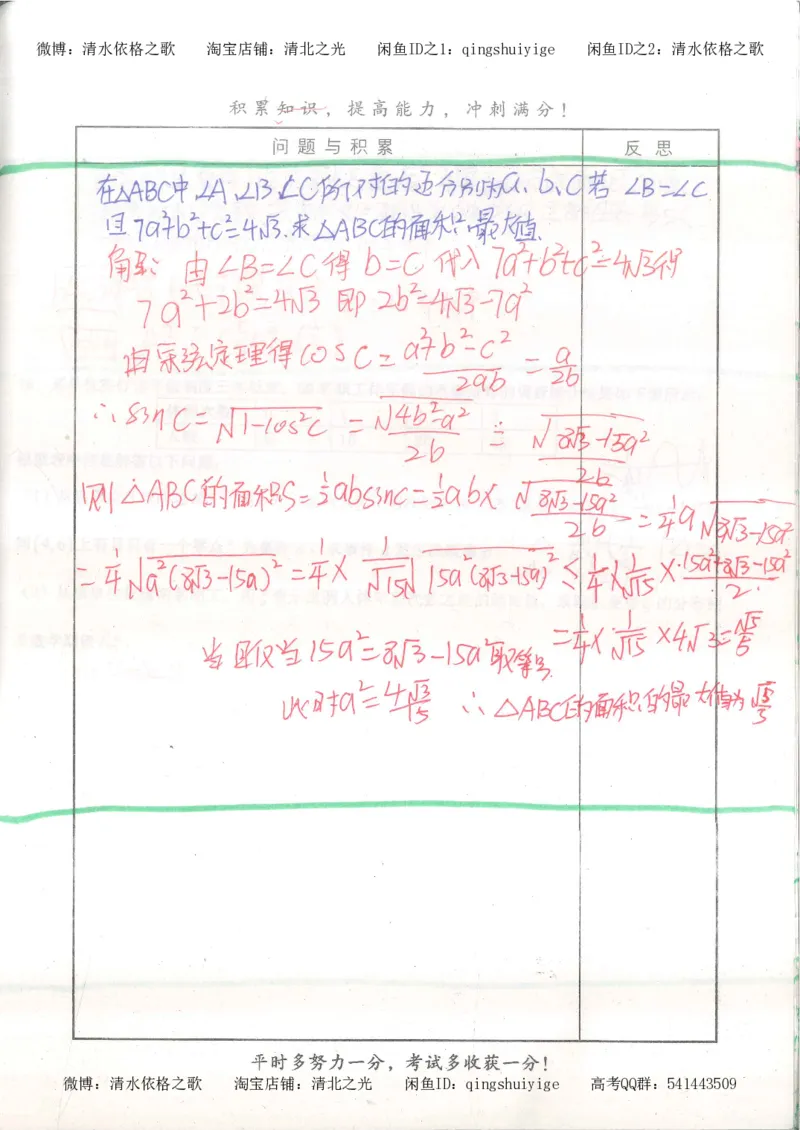 微博：清水依格之歌 淘宝店铺：清北之光 闲鱼ID之1：qingshuiyige 闲鱼ID之2：清水依格之歌
积累知识，提高能力，冲刺满分！
问题与积累 反思
在△ABC中∠A、∠B、∠C所对的边分别为a、b、c若 ∠B=∠C
且7a²+b²+c²=4√3.求△ABC的面积最大值.
解：由∠B=∠C得 b=c 代入7a²+b²+c²=4√3得
7a²+2b²=4√3 即 2b²=4√3-7a²
由余弦定理得cosC=(a²+b²-c²)/(2ab)=a/(2b)
∴sinC=√(1-cos²C)=√(4b²-a²)/(2b)=√(8√3-15a²)/(2b)
则△ABC的面积S=½absinC=½ab×√(8√3-15a²)/(2b)=¼a√(8√3-15a²)
=¼√(a²(8√3-15a)²)=¼×1/√15√(15a²(8√3-15a)²)≤¼×1/√15×(15a²+8√3-15a²)/2
=¼×1/√15×4√3=√5/5
当且仅当15a²=8√3-15a²取等号.
此时a²=4√3/15 ∴△ABC的面积的最大值为√5/5
平时多努力一分，考试多收获一分！
微博：清水依格之歌 淘宝店铺：清北之光 闲鱼ID：qingshuiyige 高考QQ群：541443509